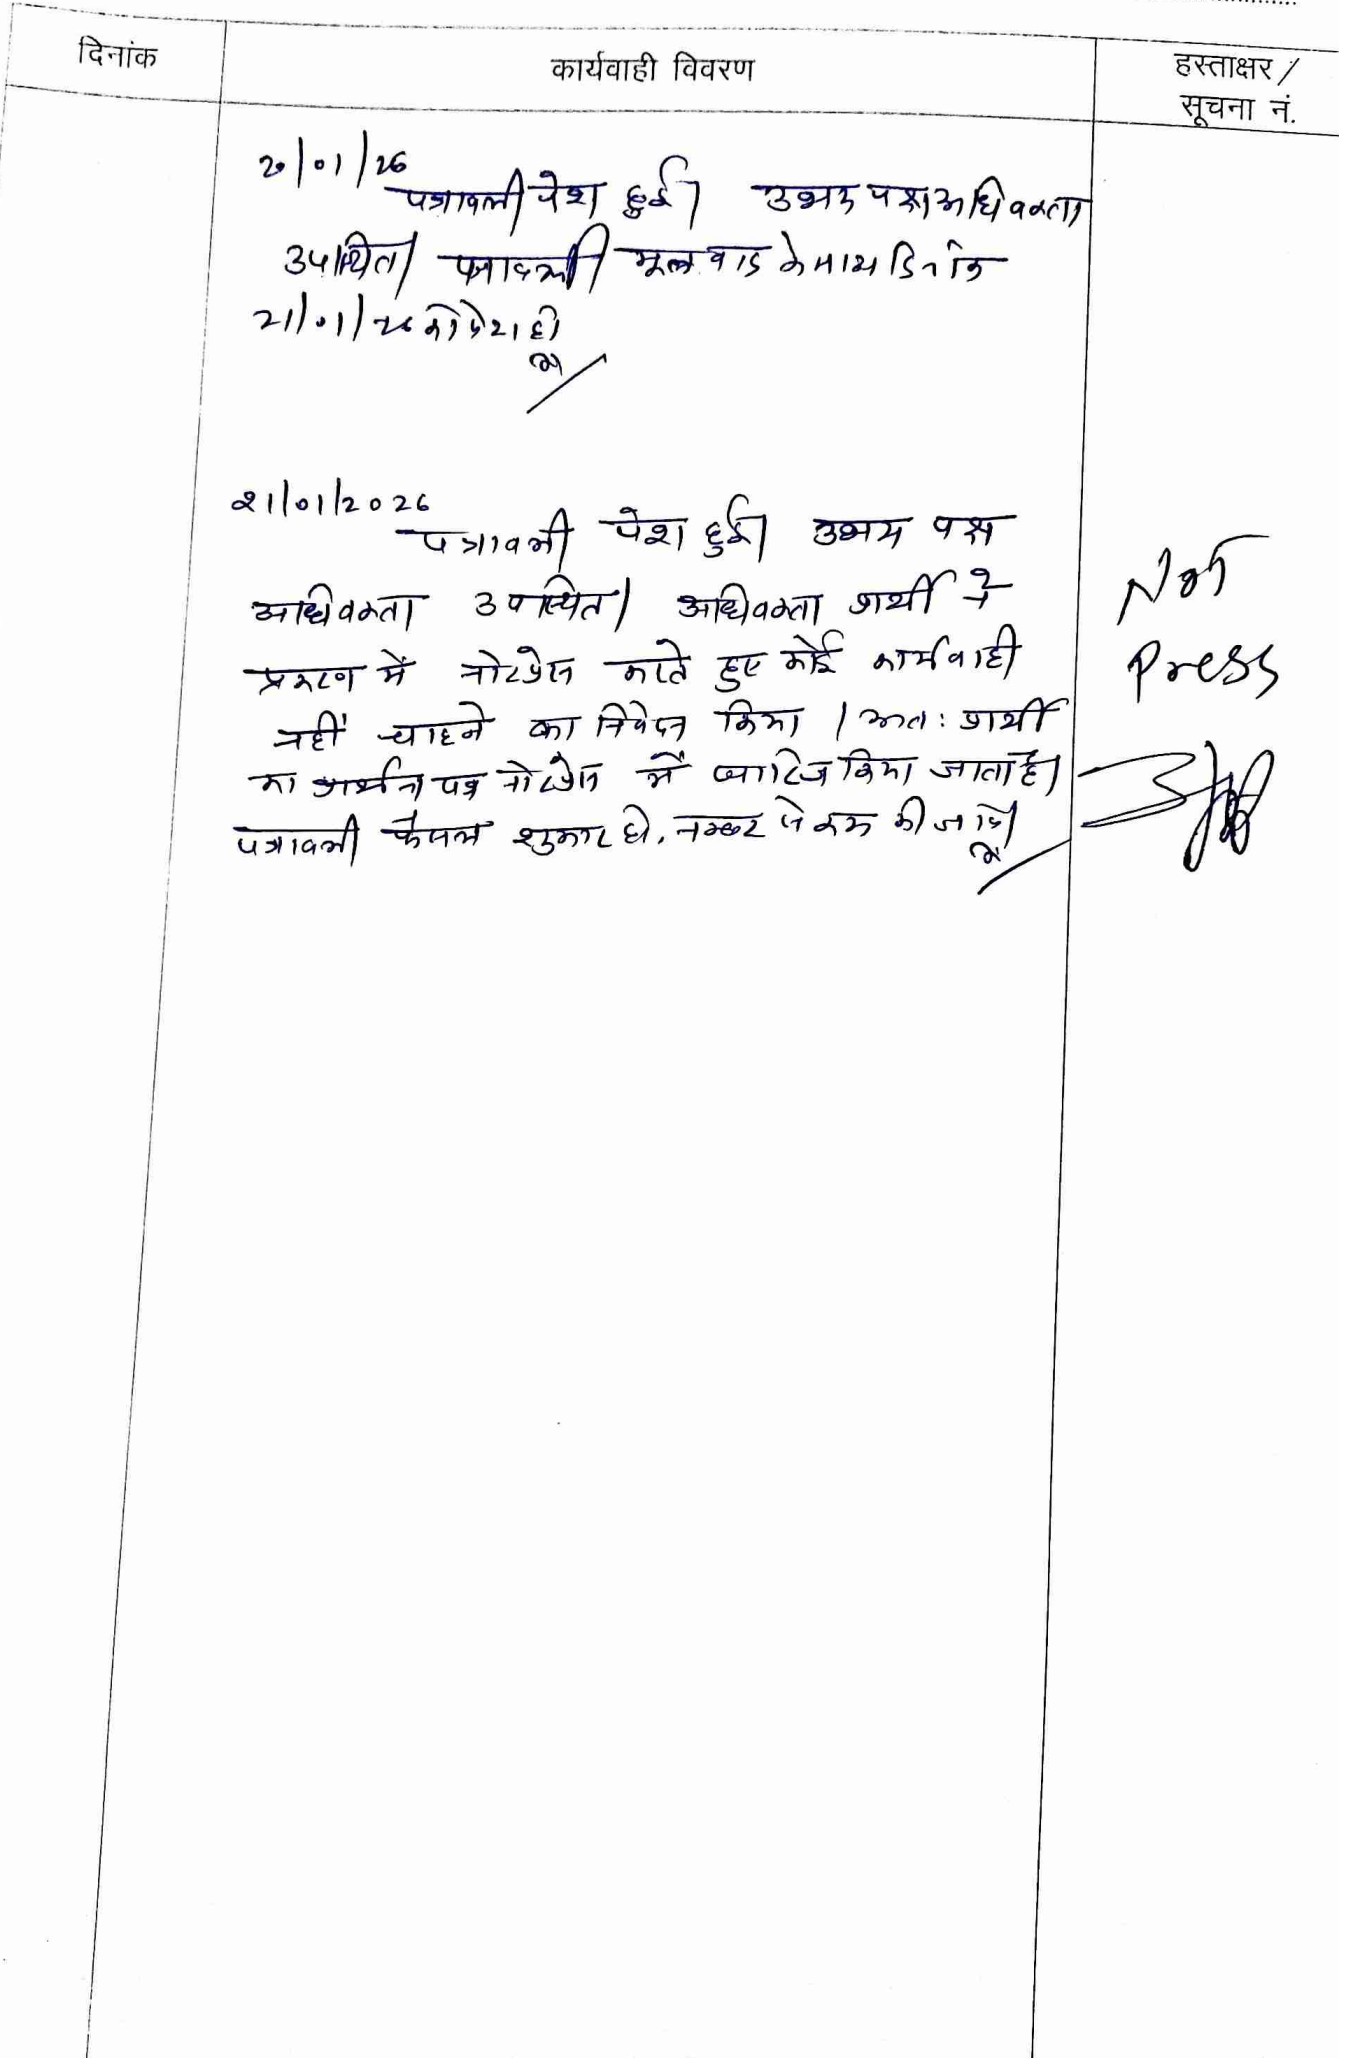 दिनांक
कार्यवाही विवरण
हस्ताक्षर /
सूचना नं.
20/01/26
पत्रावली पेश हुई। उभय पक्ष अधिवक्ता
उपस्थित। पत्रावली मूल वाद के साथ दिनांक
21/01/26 को पेश हो।
21/01/2026
पत्रावली पेश हुई। उभय पक्ष
अधिवक्ता उपस्थित। अधिवक्ता प्रार्थी ने
प्रकरण में नोटप्रेस करते हुए कोई कार्यवाही
नहीं चाहने का निवेदन किया। अतः प्रार्थी
का प्रार्थना पत्र नोटप्रेस में खारिज किया जाता है।
पत्रावली फैसल शुमार हो. नम्बर से कम की जावे।
Not
Press